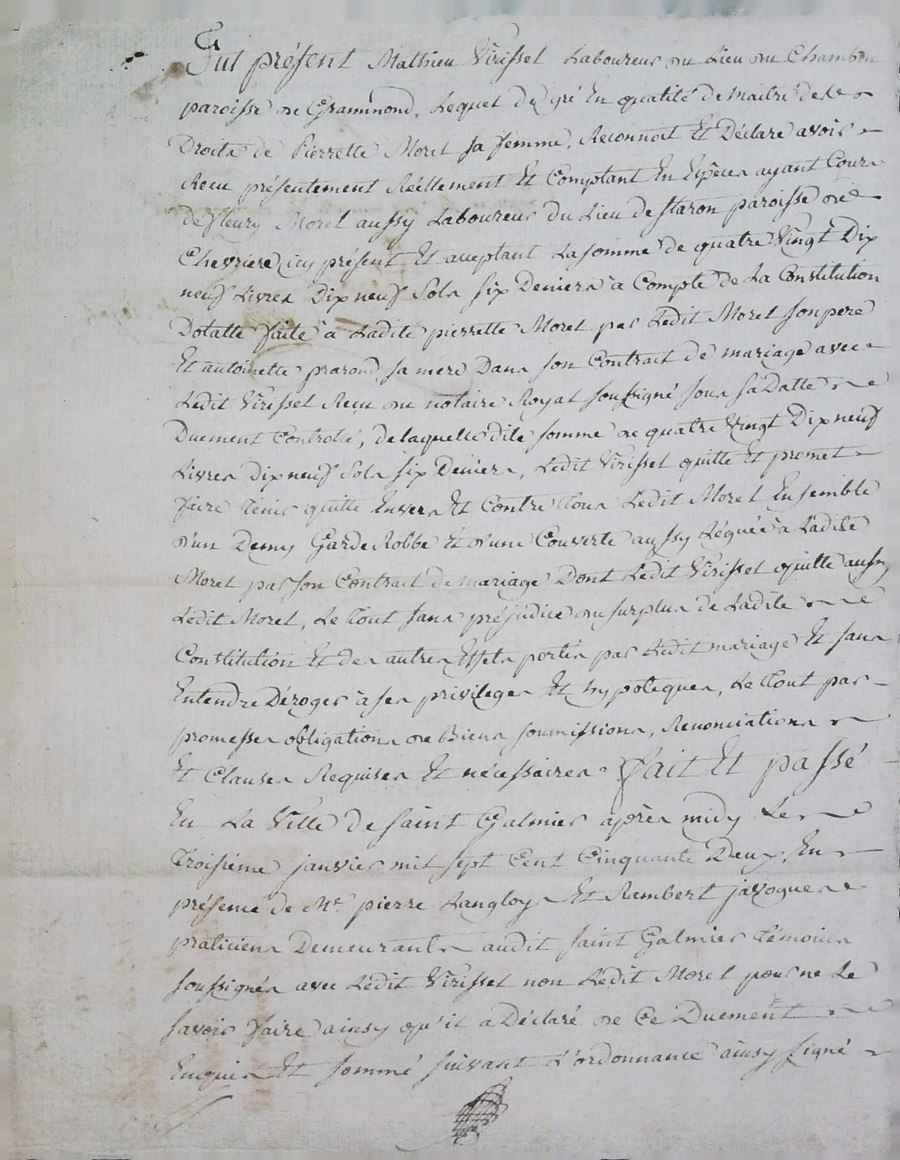 Fut présent Mathieu Virisset Laboureur du Lieu du Chambon
paroisse de Grammond, Lequel de gré En qualité de maitre des
Droits de Pierrette Moret sa femme, Reconnoit Et Déclare avoir
Recu présentement Réellement Et Comptant En Espèces ayant Cours
de fleury Moret aussy Laboureur du Lieu de paroisse de
Chevriere icy présent Et acceptant La somme de quatre Vingt Dix
neuf Livres Dix neuf Sols six Deniers à Compte de La Constitution
Dotalle faite à Ladite pierrette Moret par Ledit Moret son pere
Et antoinette sa mere Dans son Contrat de mariage avec
Ledit Virisset Recu du notaire Royal soussigné sous sa Datte
Duement Controllé, de laquelle dite somme de quatre Vingt Dix neuf
Livres dix neuf Sols six Deniers, Ledit Virisset quitte Et promet
faire tenir quitte Envers Et Contre tous Ledit Moret Ensemble
d'un Demy Garde Robbe Et d'une Couverte aussy Léguée à Ladite
Moret par son Contrat de mariage Dont Ledit Virisset quitte aussy
Ledit Moret, Le tout sans préjudice du surplus de Ladite
Constitution Et des autres Effets portés par Ledit mariage Et sans
Entendre Déroger à ses privileges Et hypoteques, Le tout par
promesses obligations de Biens soumissions, Renonciations
Et Clauses Requises Et nécessaires. Fait Et passé
En La Ville de saint Galmier après midy Le
troisième janvier mil sept Cent Cinquante Deux, En
présence de Me. pierre Langloys Et Rembert javogues
praticiens Demeurants audit saint Galmier témoins
soussignés avec Ledit Virisset non Ledit Moret pour ne Le
savoir faire ainsy qu'il a Déclaré de Ce Duement
Enquis Et sommé suivant L'ordonnance ainsy signé